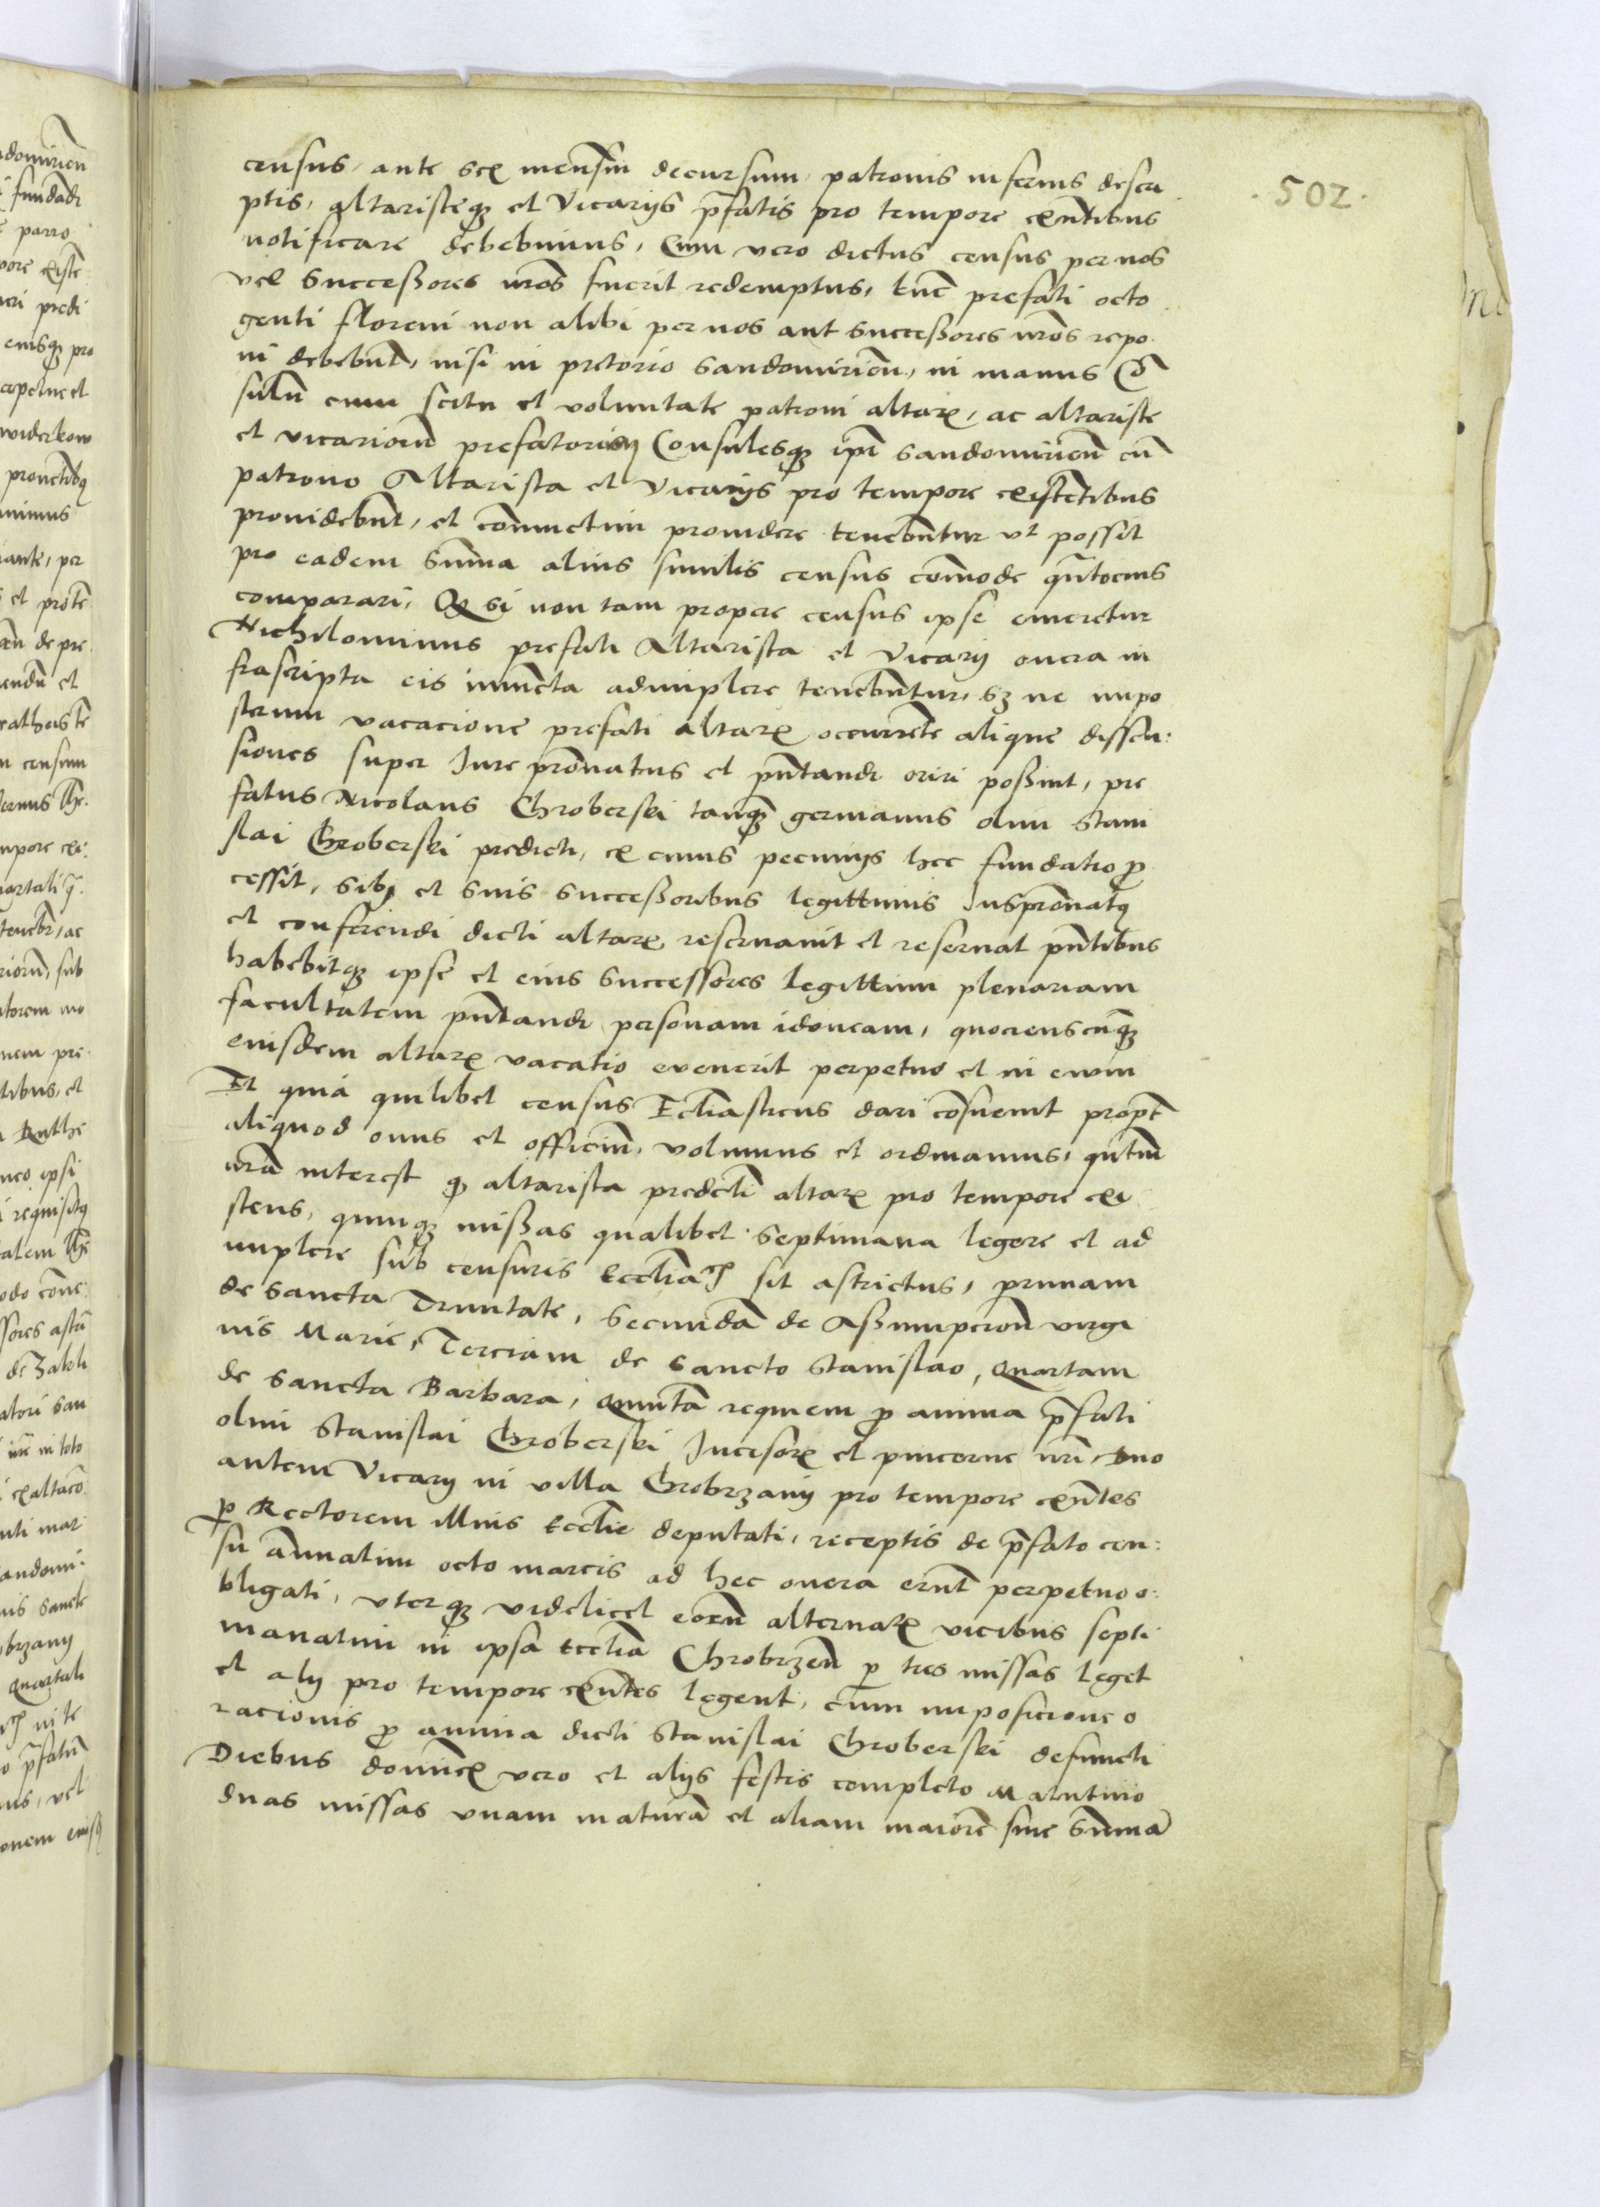 502
census, ante sex mensiū decursum, patronis inferius descri
ptis, altaristeqꝫ et Vicarijs p̄fatis pro tempore exn̄tibus
notificare debebimus, Cum vero dictus census per nos
vel Successores nr̄os fuerit redemptus, tunc prefati octo
genti floreni non alibi per nos aut successores nr̄os repo
ni debebūt, nisi in pretorio Sandomirien̄, in manus Cō
sulū cum scitu et voluntate patroni altaris, ac altariste
et vicariorū prefatorum Consulesqꝫ ip̄i Sandomirien̄ cū
patrono Altarista et Vicarijs pro tempore existētibus
providebūt, et coniunctim providere tenebūtur vt possit
pro eadem sūma alius similis census cōmode quātocius
comparari, Qꝫ si non tam propere census ipse emeretur
Nichilominus prefati Altarista et Vicarij onera in
frascripta eis iniuncta adimplere tenebūtur, sꝫ ne inpo
sterum vacacione prefati altaris occurrēte alique dissen
siones super Jure pronatus et pn̄tandi oriri possint, pre
fatus Nicolaus Chroberski tanqꝫ germanus olim Stani
slai Chroberski predicti, ex cuius pecunijs hec fundatio ꝓ
cessit, sibi et suis successoribus legittimis Juspronatꝰ
et conferendi dicti altaris reservavit et reservat pn̄tibus
habebitqꝫ ipse et eius successores legittimi plenariam
facultatem pn̄tandi personam idoneam, quocienscūqꝫ
eiusdem altaris vacatio evenerit perpetuo et in evum
Et quia quilibet census Eccl̄iasticus dari cōsuevit propt̄
aliquod onus et officiū, volumus et ordinamus, quātum
nr̄a interest qꝫ altarista predicti altaris pro tempore exi
stens, quinqꝫ missas qualibet septimana legere et ad
implere sub censuris eccl̄ia sit astrictus, primam
de Sancta Trinitate, Secundā de Assumpcion̄ virgi
nis Marie, Terciam de Sancto Stanislao, Quartam
de Sancta Barbara, Quintā requiem ꝓ anima p̄fati
olim Stanislai Chroberski Incisoris et pincerne nr̄i, Duo
autem Vicarij in villa Chrobrzanij pro tempore exn̄tes
ꝑ Rectorem illius eccl̄ie deputati, receptis de p̄fato cen
su annatim octo marcis ad hec onera erūt perpetuo o
bligati, vterqꝫ videlicet eorū alternatis vicibus septi
manatim in ipsa eccl̄ia Chrobrzen̄ ꝑ tres missas leget
et alij pro tempore exn̄tes legent, cum inposicione o
racionis ꝓ anima dicti Stanislai Chroberski defuncti
Diebus dominicis vero et alijs festis completo Matutino
duas missas vnam maturā et aliam maiorē sive sūmā